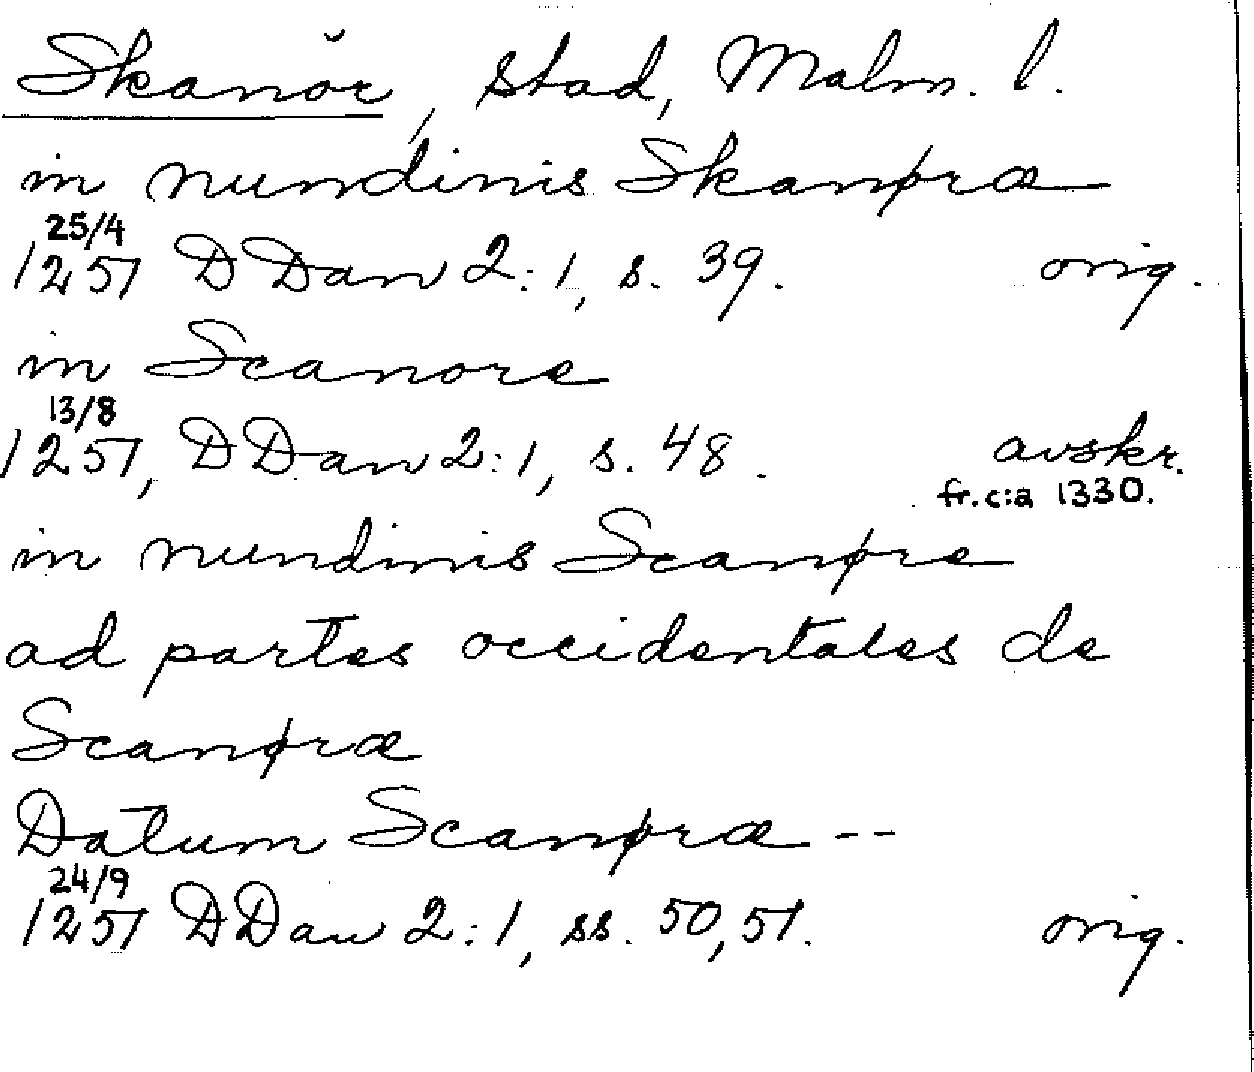 Skanör, stad, Malm. l.
in nundinis Skanøræ
25/4
1251 DDan 2:1, s. 39. orig.
in Scanore
13/8
1251, DDan 2:1, s. 48. avskr.
fr. c:a 1330.
in nundinis Scanøre
ad partes occidentales de
Scanøræ
Datum Scanøræ --
24/9
1251 DDan 2:1, ss. 50, 51. orig.